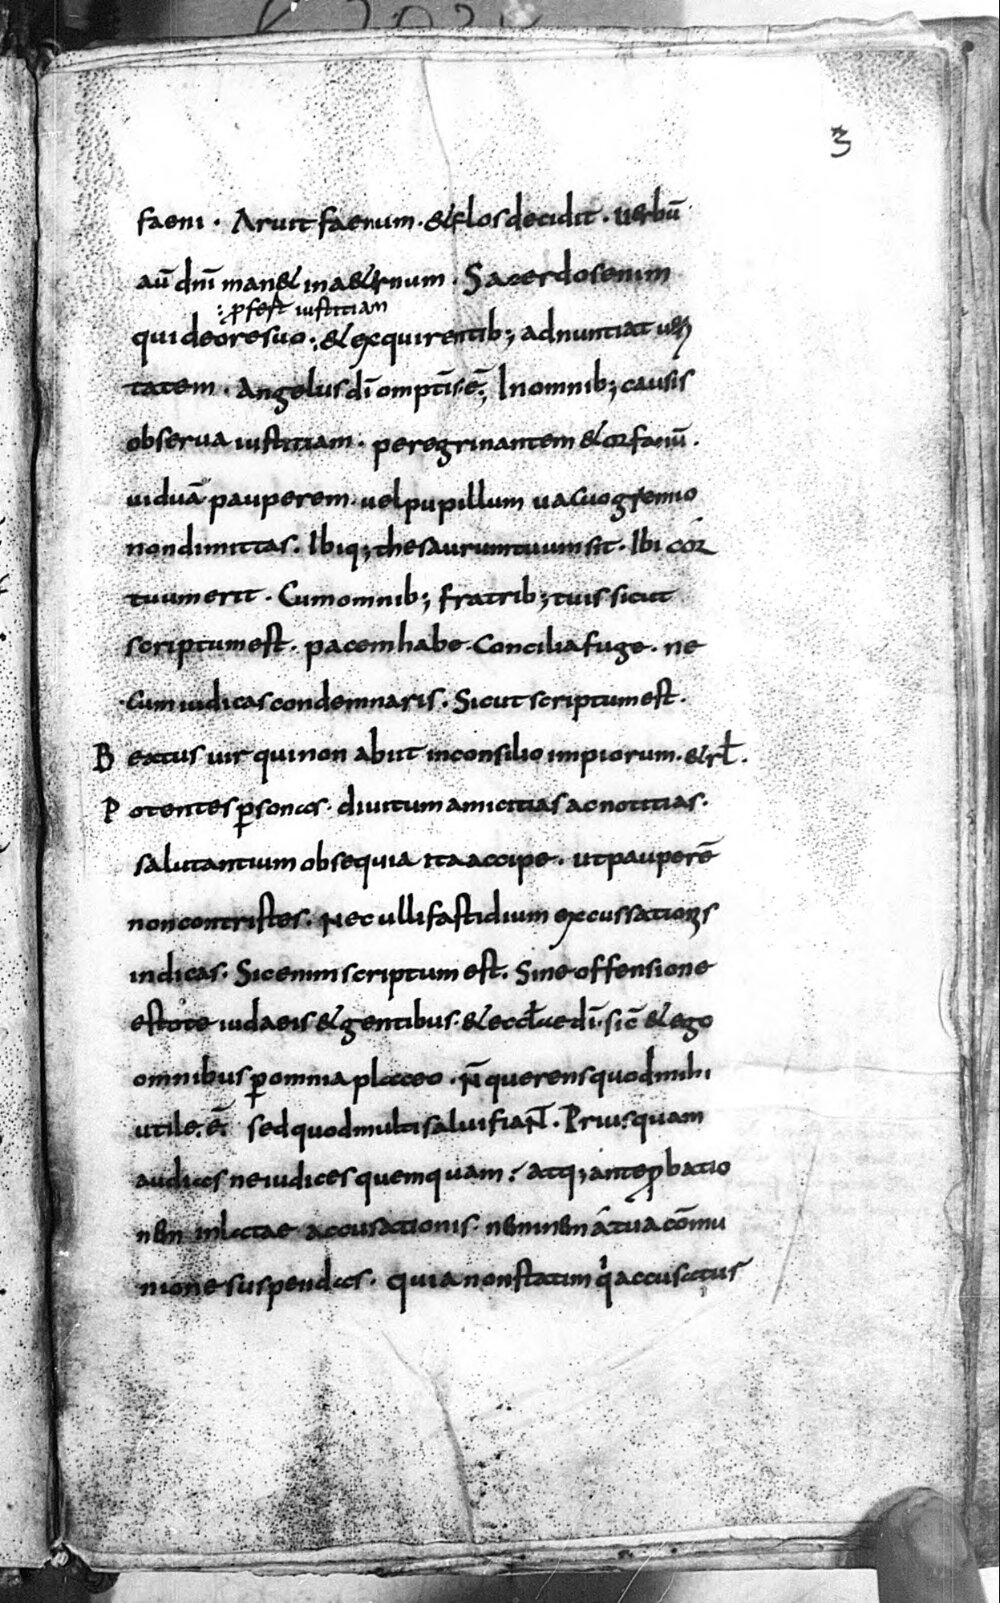 3
faeni · Aruit faenum · & flos decidit · uerbū
aū dnī man& in a&ernum · Sacerdos enim
: ꝓfest iustitiam
qui de ore suo :, & excquirentib; adnuntiat ueri
tatem · Angelus dī omptīs·ē; In omnib; causis
obserua iustitiam · peregrinantem & orfanū ·
uiduā pauperem · uel pupillum uacuo gremio
non dimittas · Ibiq; thesaurum tuum sit · Ibi cor
tuum erit · Cum omnib; fratrib; tuis sicut
scriptum est · pacem habe · Concilia fuge · ne
cum iudicas condemnaris · Sicut scriptum est ·
B eatus uir qui non abiit in consilio impiorum · & rł ·
P otentes ꝑsonas · diuitum amicitias ac notitias ·
salutantium obsequia ita accipe · ut pauperē
non contristes · Nec ulli fastidium excussationis
indicas · Sic enim scriptum est · Sine offensione
estote iudaeis & gentibus · & eccłae dī · sic̄ & ego
omnibus ꝑ omnia placeo · N̄ querens quod mihi
utile·ē· sed quod multi salui fiaN̄t · Priusquam
audias ne iudices quemquam : atq; ante ꝓbatio
nem inlatae accusationis · neminem a tua cōmu
nione suspendas · quia non statim qi accusatus